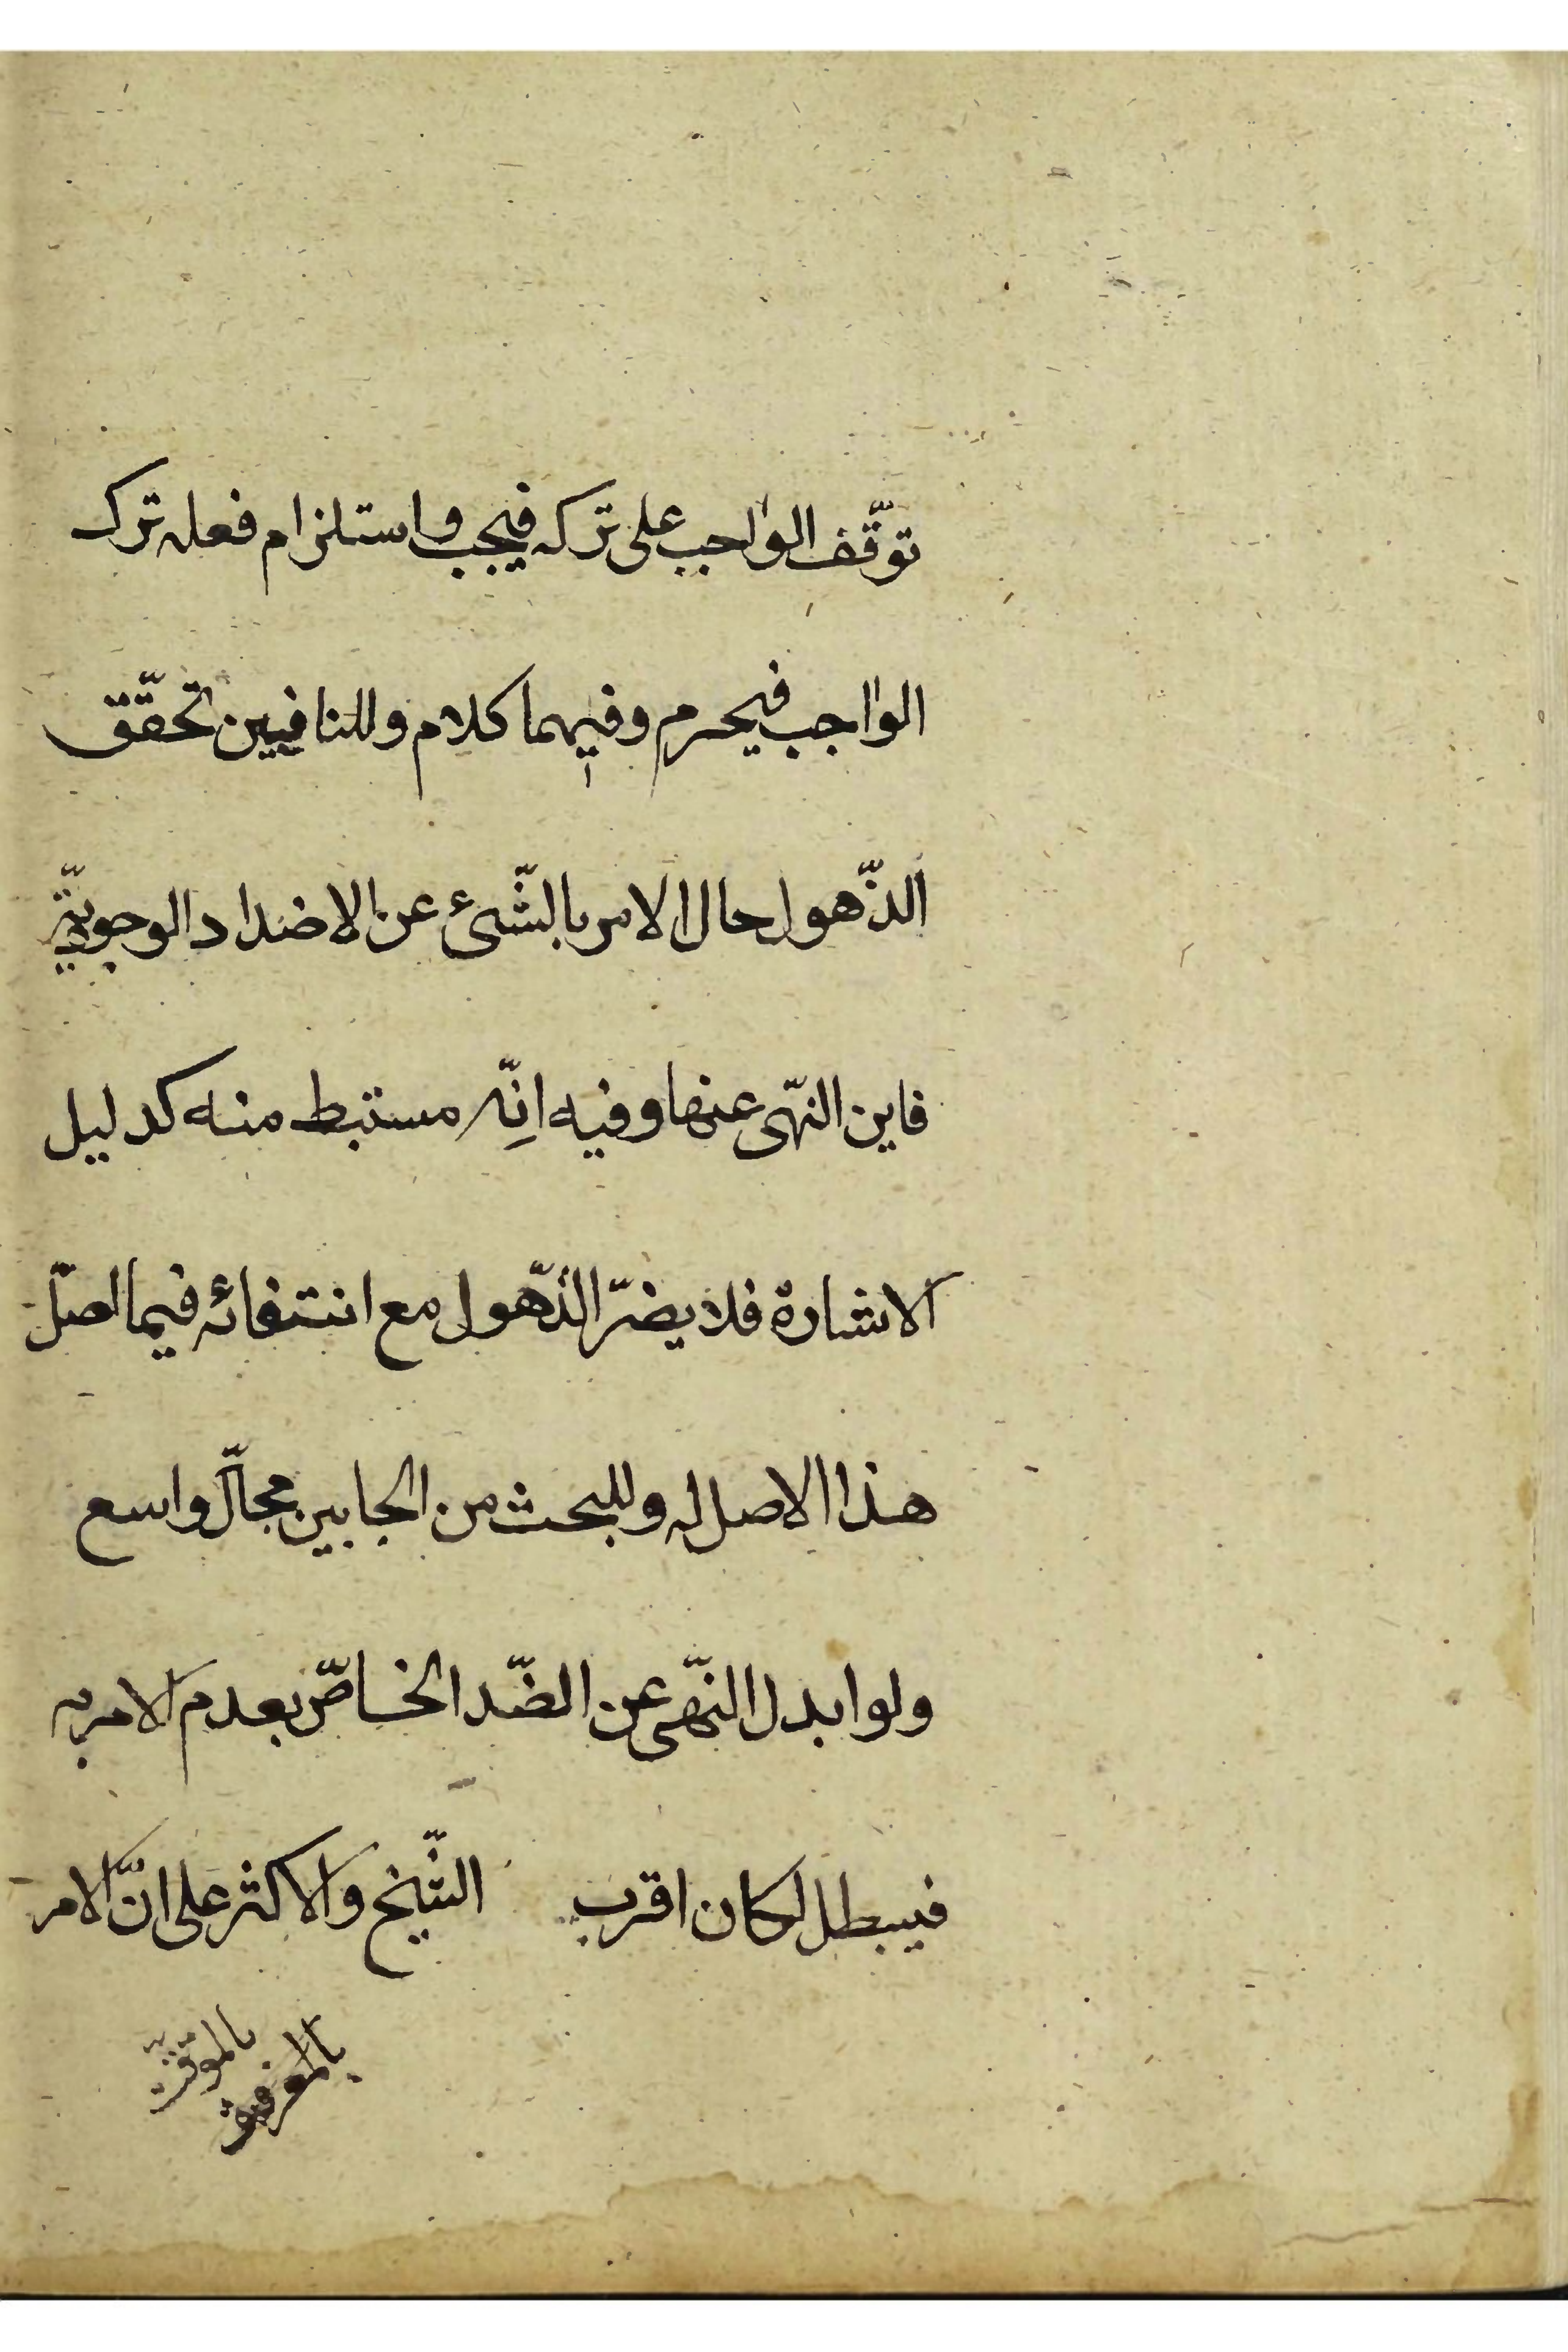 توقّف الواجب على تركه فيجب واستلزام فعله ترك
الواجب فيحرم وفيهما كلام وللنافيين تحقّق
الذّهول حال الامر بالشّئ عن الاضداد الوجوديّة
فاين النهّى عنها وفيه انّه مستنبط منه كدليل
الاشارة فلا يضرّ الذّهول مع انتفائه فيما اصّل
هذا الاصل له وللبحث من الجانبين مجال واسع
ولو ابدل النهّى عن الضّد الخاصّ بعدم الامر به
فيبطل لكان اقرب الشّيخ والاكثر على انّ الامر